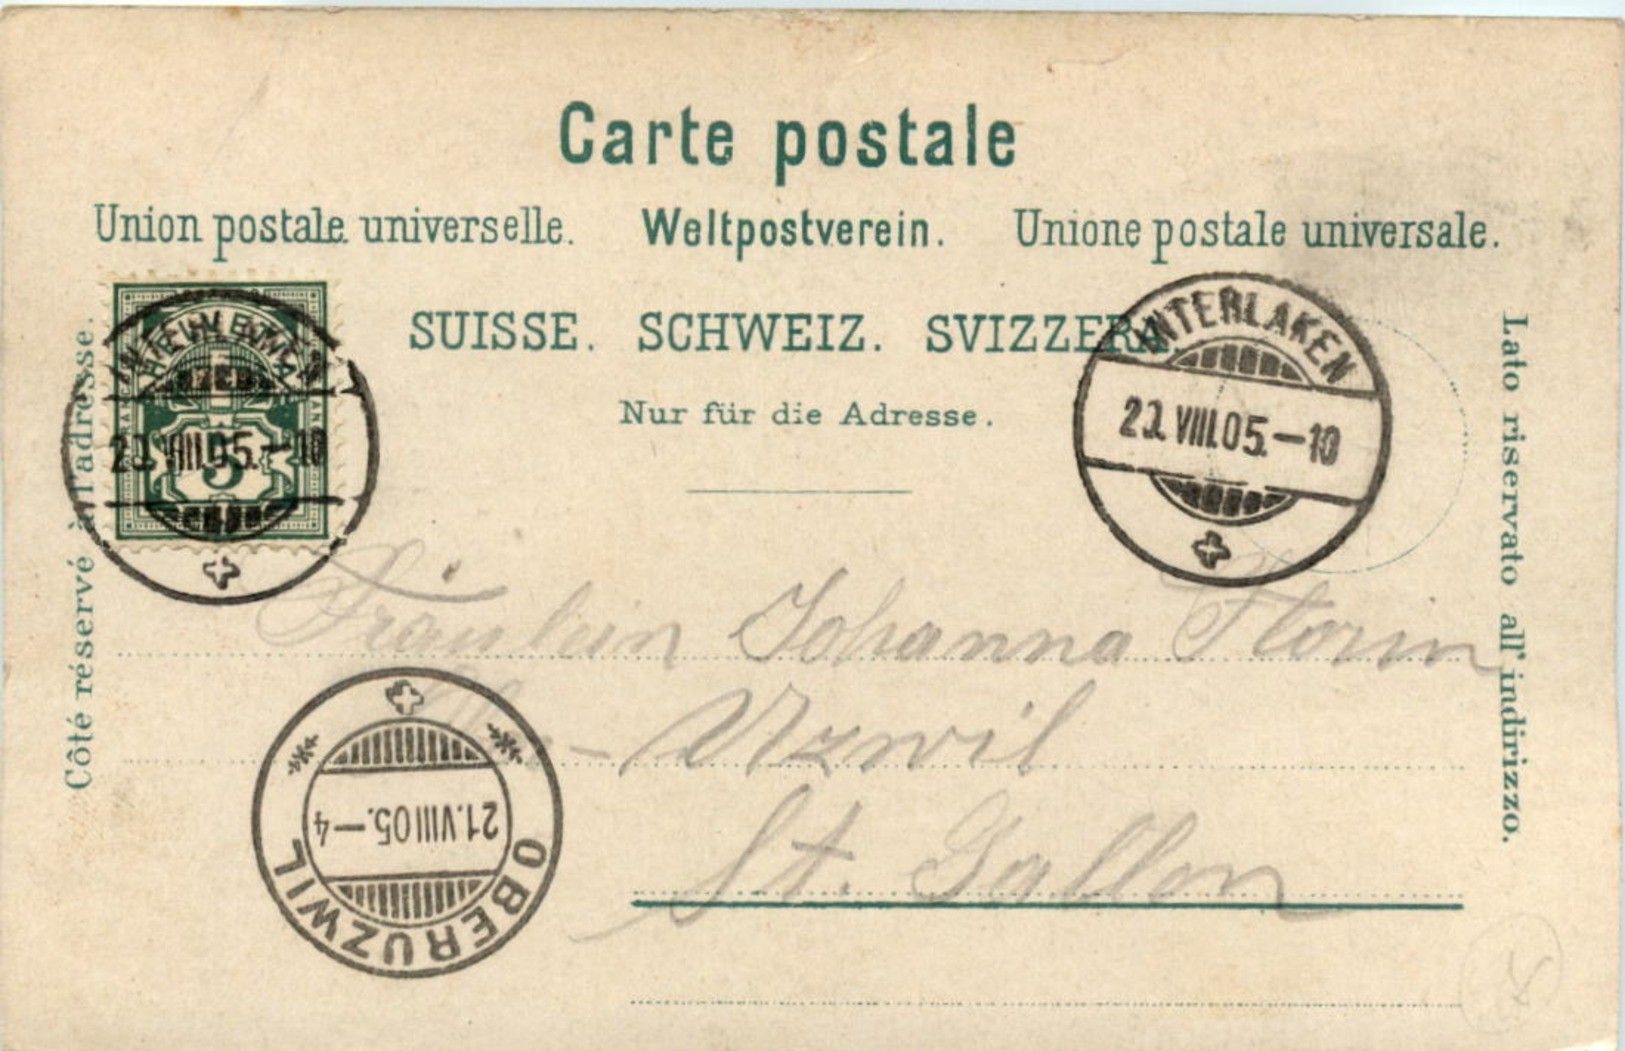 Carte postale
Union postale universelle. Weltpostverein. Unione postale universale.
SUISSE. SCHWEIZ. SVIZZERA
Nur für die Adresse.
Côté réservé à l'adresse.
Lato riservato all' indirizzo.
5
20.VIII.05.-10
INTERLAKEN
20.VIII.05.-10
Fräulein Johanna Florin
- Uzwil
St. Gallen
OBERUZWIL
21.VIII05.-4